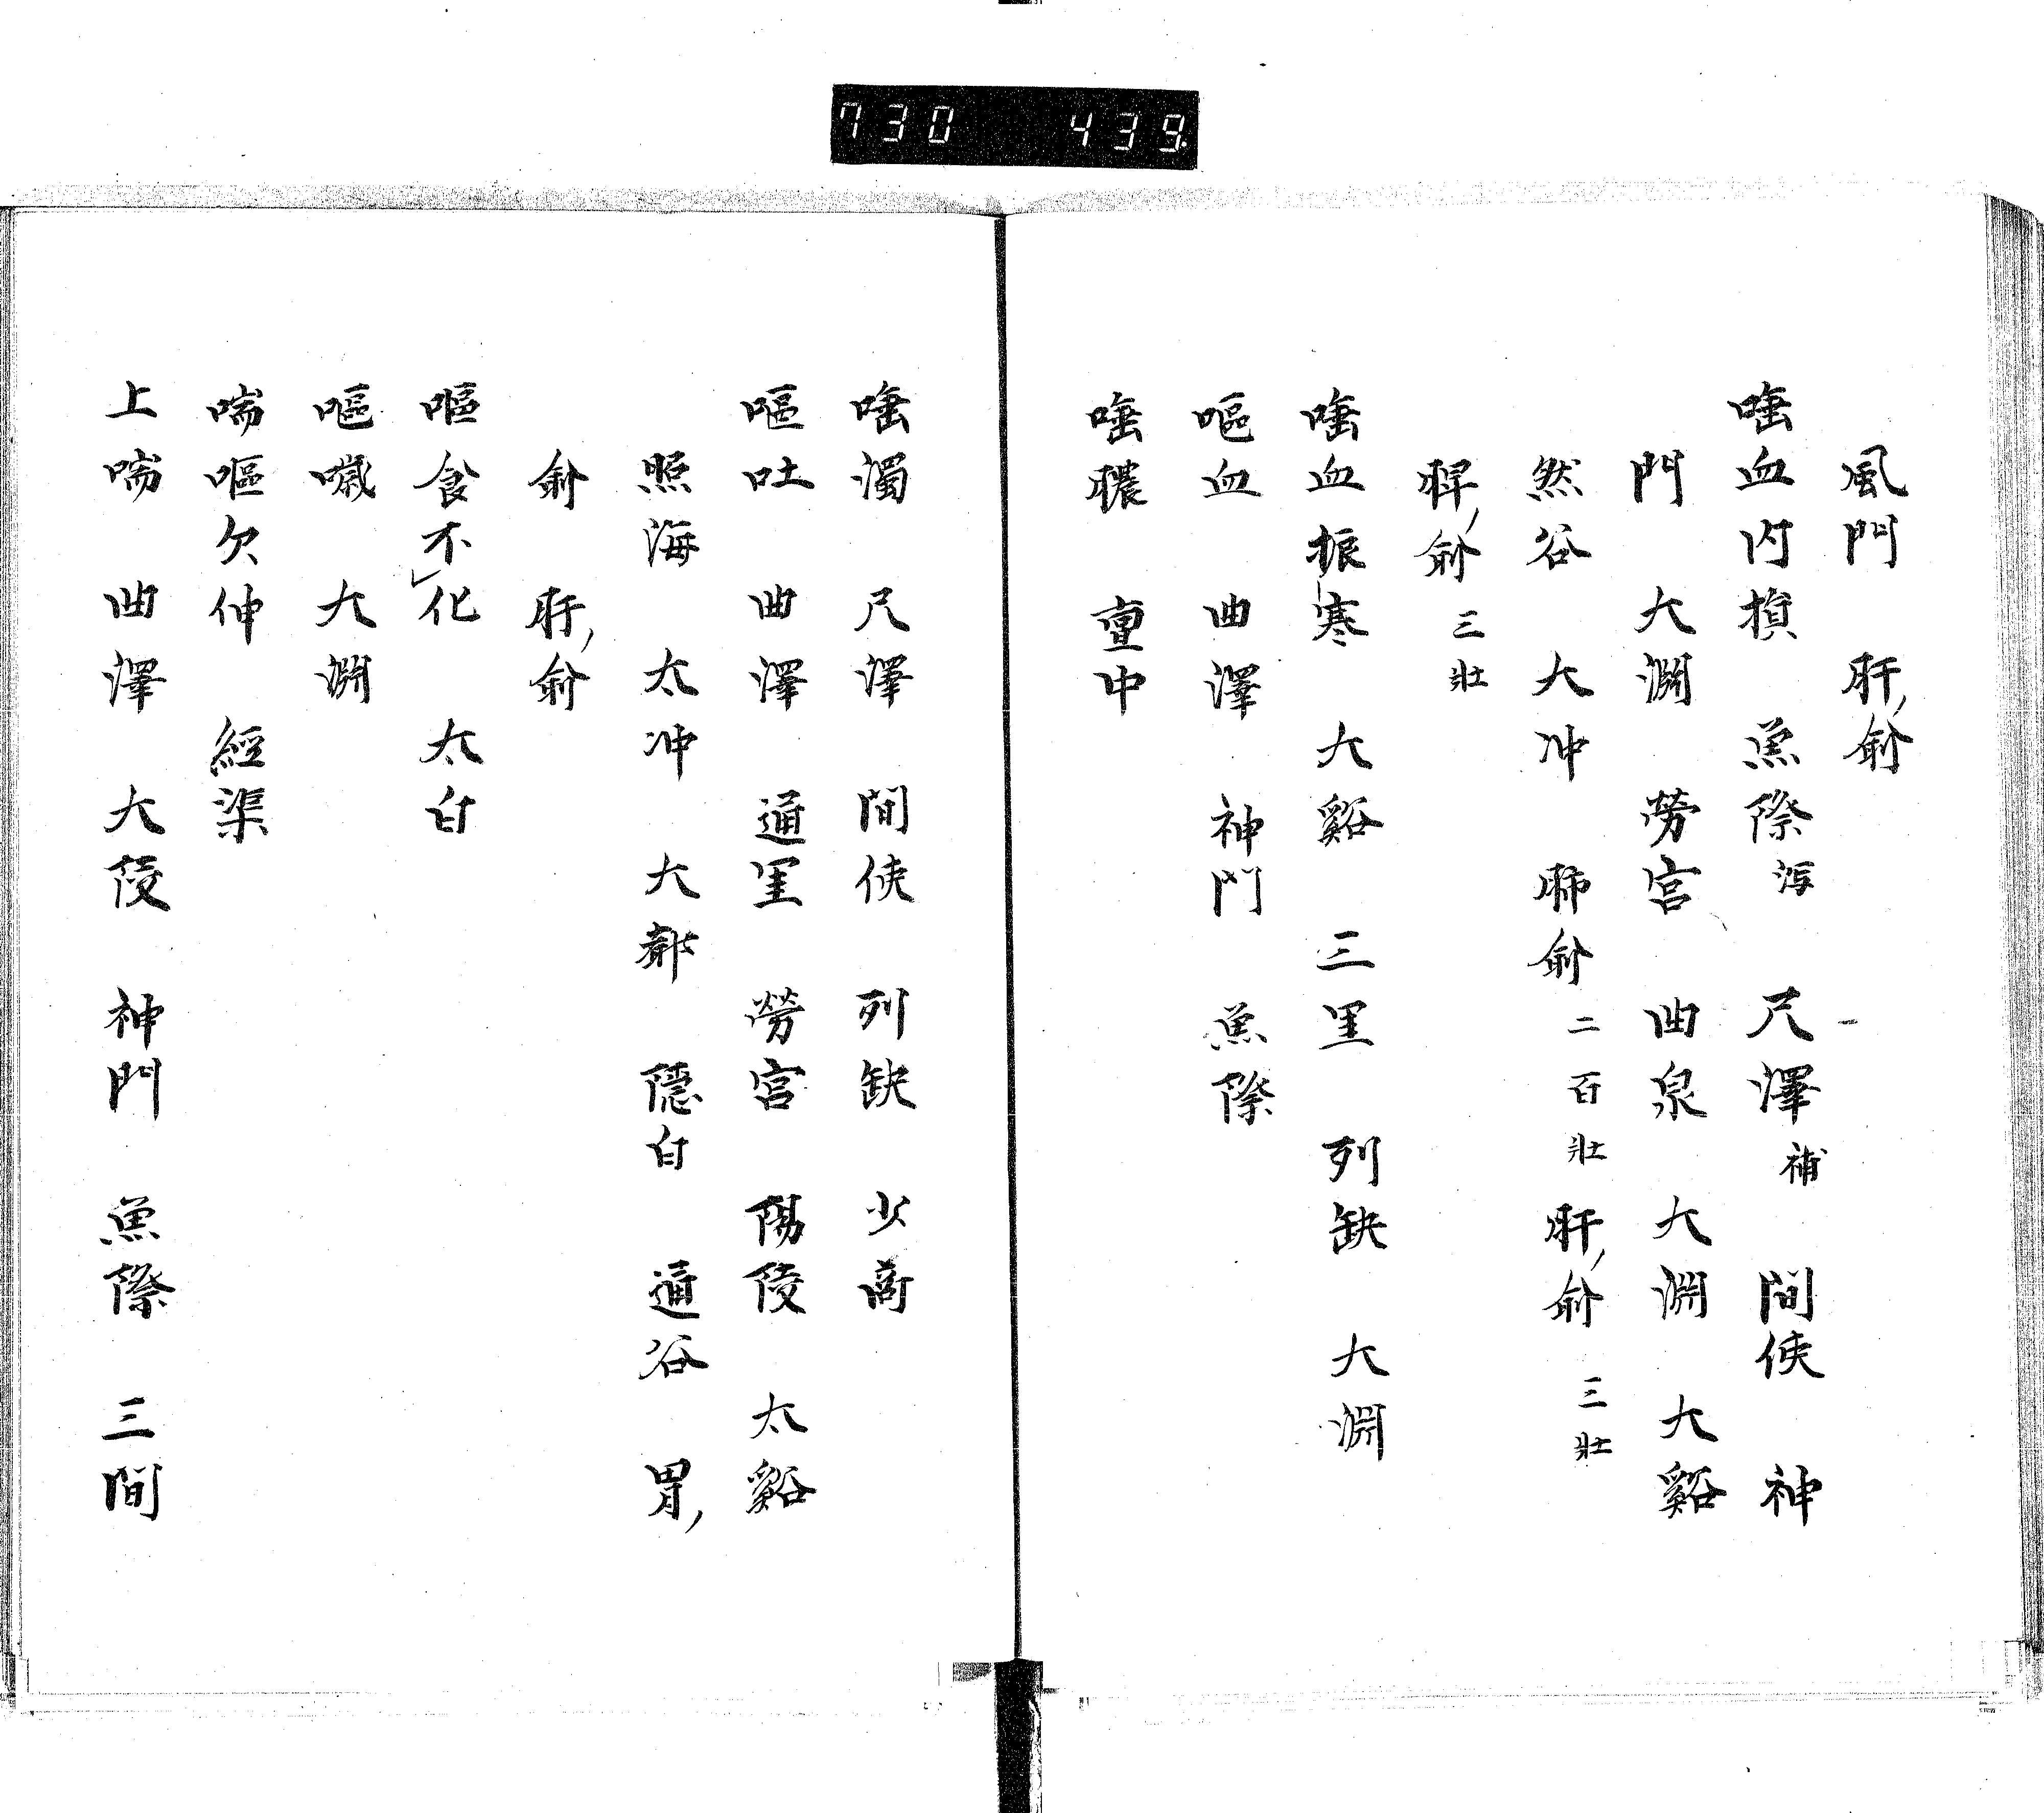 730 439
風門 肝俞
唾血内損 魚際瀉 尺澤補 間使 神
門 大淵 勞宮 曲泉 大淵 大谿
然谷 大冲 肺俞二百壯 肝俞三壯
脾俞三壯
唾血振寒 大谿 三里 列缺 大淵
嘔血 曲澤 神門 魚際
唾膿 亶中
唾濁 尺澤 間使 列缺 少商
嘔吐 曲澤 通里 勞宮 陽陵 太谿
照海 太冲 大都 隱白 通谷 胃
俞 肝俞
嘔食不化 太白
嘔噦 大淵
喘嘔欠伸 經渠
上喘 曲澤 大陵 神門 魚際 三間